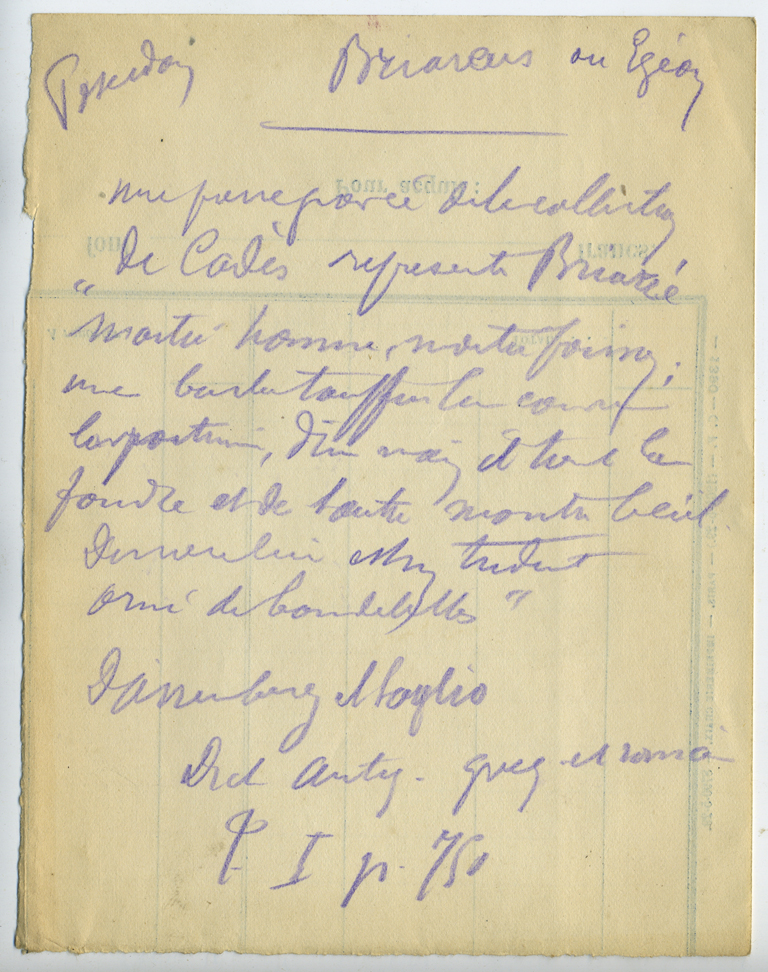 Poseidon Briareus ou Egéon
une pierre gravée de la collection
de Cadès représente Briarée
"moitié homme, moitié poisson;
une barbe touffue lui couvre
la poitrine, d'une main il tient la
foudre et de l'autre montre le ciel
Derrière lui est un trident
orné de bandelettes"
Daremberg et Saglio
Dict Antiq. grecq et romai
T I p. 750